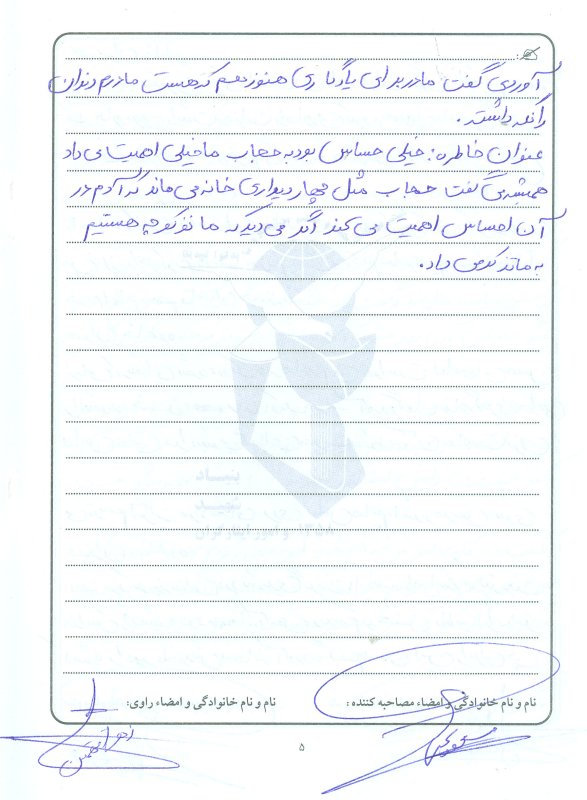 آوردی گفت مادر برای یادگاری هنوز هم که هست مادرم دندان
را نگه داشته.
عنوان خاطره: خیلی حساس بود به حجاب ما خیلی اهمیت می داد
همیشه می گفت حجاب مثل چهار دیواری خانه می ماند که آدم در
آن احساس اهمیت می کند اگر می دید که ما تو کوچه هستیم
به ما تذکر می داد.
بنیاد
شهید
و امور ایثارگران
نام و نام خانوادگی و امضاء مصاحبه کننده:
نام و نام خانوادگی و امضاء راوی:
زهرا
۵